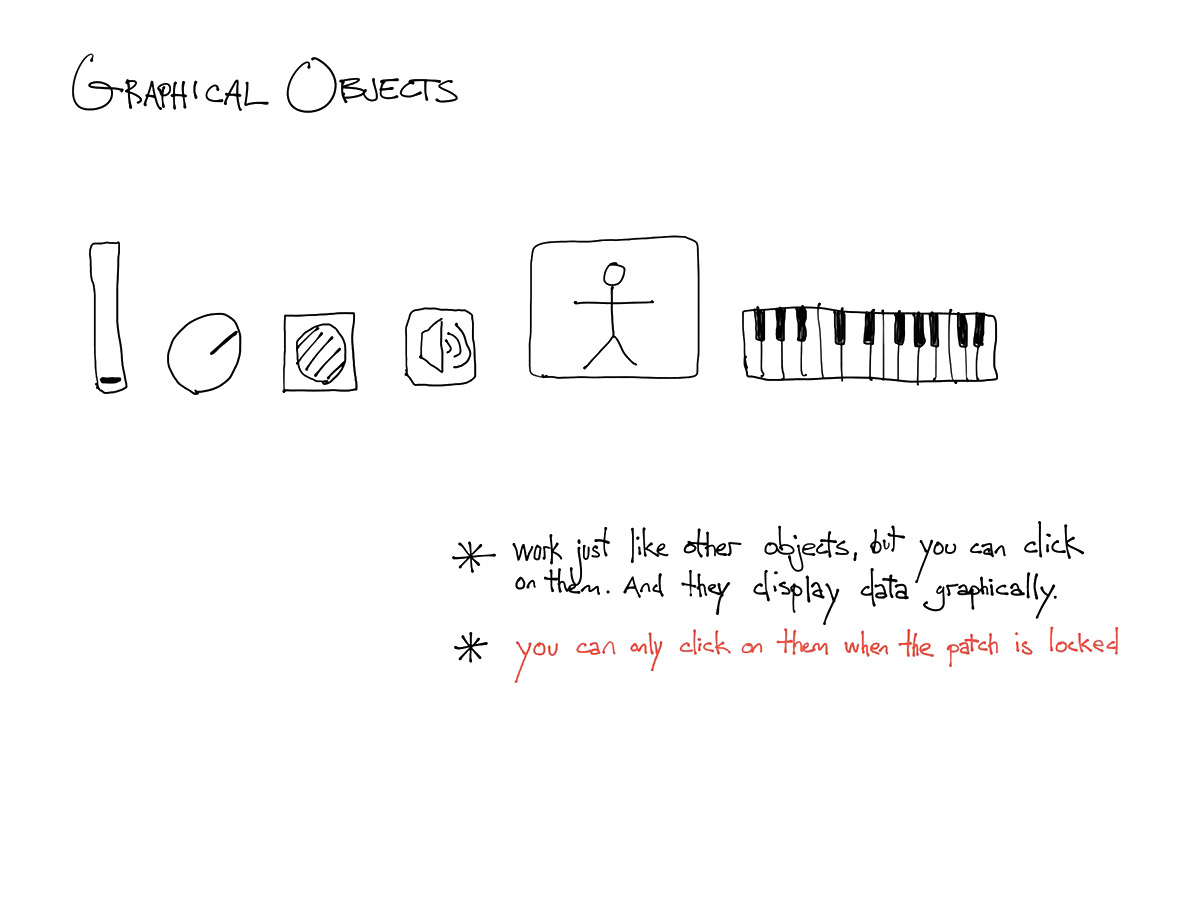 GRAPHICAL OBJECTS
* work just like other objects, but you can click
on them. And they display data graphically.
* you can only click on them when the patch is locked